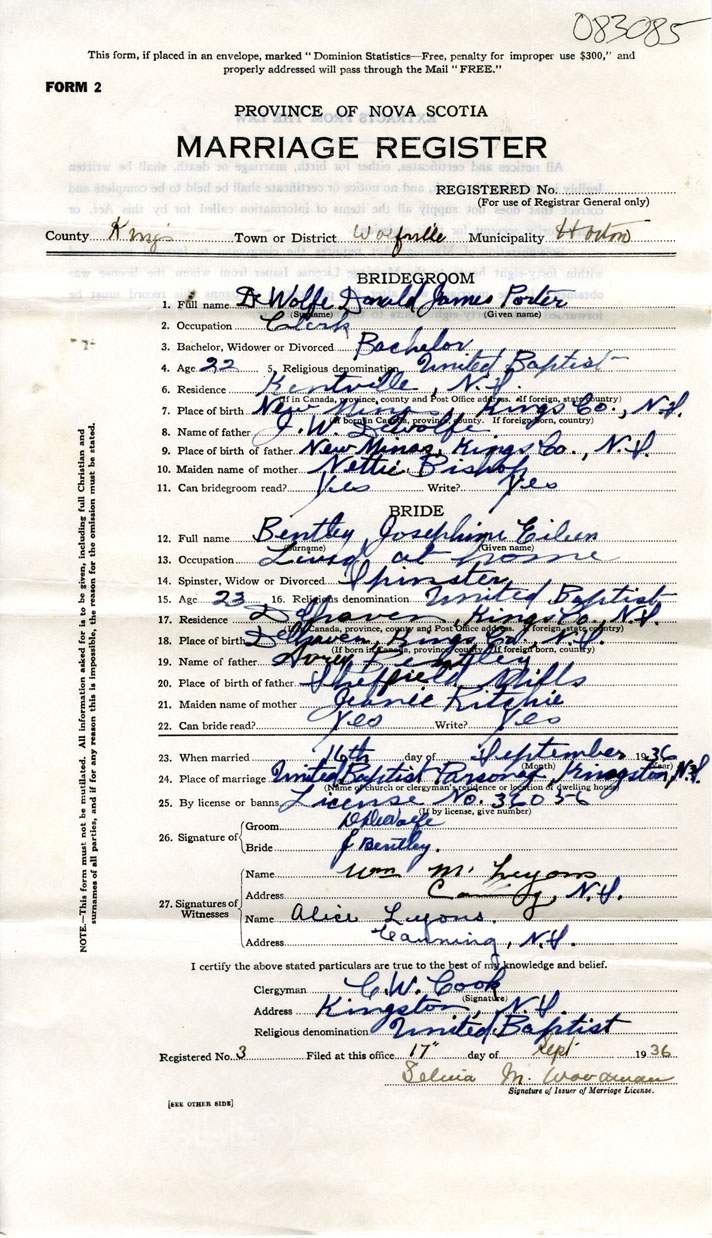 083085
This form, if placed in an envelope, marked "Dominion Statistics—Free, penalty for improper use $300," and
properly addressed will pass through the Mail "FREE."
FORM 2
PROVINCE OF NOVA SCOTIA
MARRIAGE REGISTER
REGISTERED No.
(For use of Registrar General only)
County Kings Town or District Wolfville Municipality Horton
BRIDEGROOM
1. Full name DeWolfe Donald James Porter
(Surname) (Given name)
2. Occupation Clerk
3. Bachelor, Widower or Divorced Bachelor
4. Age 22 5. Religious denomination United Baptist
6. Residence Kentville, N.S.
(If in Canada, province, county and Post Office address. If foreign, state country)
7. Place of birth New Minas, Kings Co., N.S.
(If born in Canada, province, county. If foreign born, country)
8. Name of father J. W. DeWolfe
9. Place of birth of father New Minas, Kings Co., N.S.
10. Maiden name of mother Nettie Bishop
11. Can bridegroom read? Yes Write? Yes
BRIDE
12. Full name Bentley Josephine Eileen
(Surname) (Given name)
13. Occupation Living at home
14. Spinster, Widow or Divorced Spinster
15. Age 23 16. Religious denomination United Baptist
17. Residence Delhaven, Kings Co., N.S.
(If in Canada, province, county and Post Office address. If foreign, state country)
18. Place of birth Delhaven, Kings Co., N.S.
(If born in Canada, province, county. If foreign born, country)
19. Name of father Avery Bentley
20. Place of birth of father Sheffield Mills
21. Maiden name of mother Ritchie
22. Can bride read? Yes Write? Yes
23. When married 16th day of September 1936
(Month) (Year)
24. Place of marriage United Baptist Parsonage Kingston, N.S.
(Name of church or clergyman's residence or location of dwelling house)
25. By license or banns License No. 36056
(If by license, give number)
26. Signature of Groom D DeWolfe
Bride J Bentley.
27. Signatures of Witnesses Name Wm M. Lyons
Address Canning, N.S.
Name Alice Lyons.
Address Canning, N.S.
I certify the above stated particulars are true to the best of my knowledge and belief.
Clergyman C. W. Cook
(Signature)
Address Kingston, N.S.
Religious denomination United Baptist
Registered No. 3 Filed at this office 17" day of Sept 1936
Selina M. Woodman
Signature of Issuer of Marriage License.
[SEE OTHER SIDE]
NOTE.—This form must not be mutilated. All information asked for is to be given, including full Christian and
surnames of all parties, and if for any reason this is impossible, the reason for the omission must be stated.